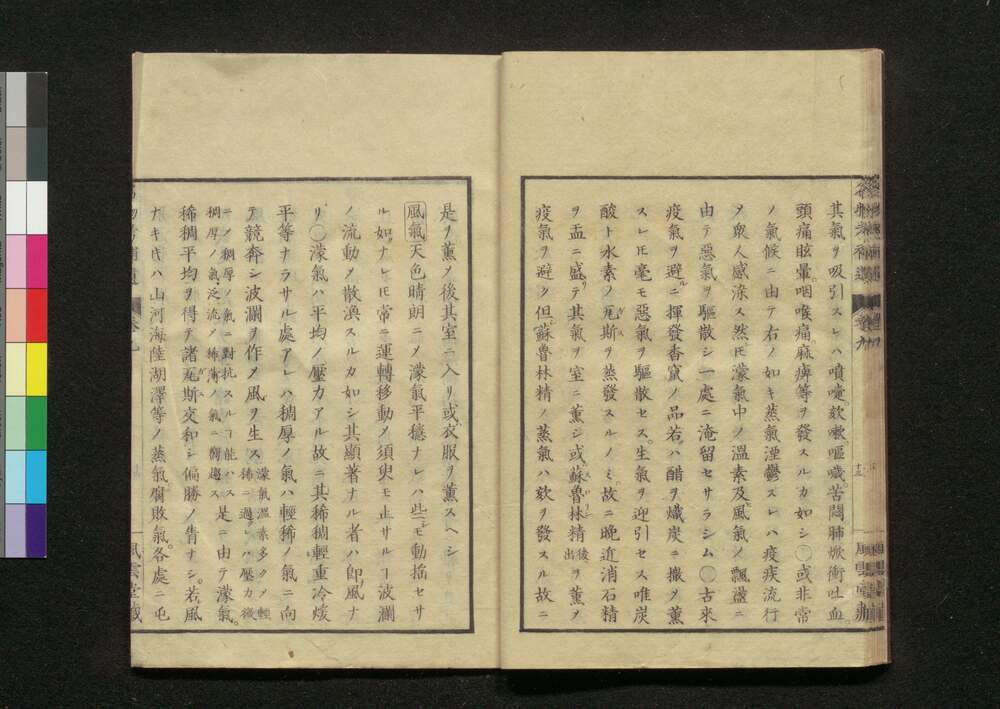 其氣ヲ吸引スレハ噴嚏欬嗽嘔嘁苦悶肺焮衝吐血
頭痛眩暈咽喉痛麻痺等ヲ發スルカ如シ○或非常
ノ氣候ニ由テ右ノ如キ蒸氣湮鬱スレハ疫疾流行
〆衆人感染ス然𪜈濛氣中ノ溫素及風氣ノ飄盪ニ
由テ惡氣ヲ驅散シ一處ニ淹留セサラシム○古來
疫氣ヲ避ルニ揮發香竄ノ品若クハ醋ヲ熾炭ニ撒〆薰
スレ𪜈毫モ惡氣ヲ驅散セス生氣ヲ迎引セス唯炭
酸ト水素ノ瓦斯ヲ蒸發スルノミ故ニ晩近消石精
ヲ盃ニ盛テ其氣ヲ室ニ薰シ或蘇魯林精後出ヲ薰〆
疫氣ヲ避ク但蘇魯林精ノ蒸氣ハ欬ヲ發スル故ニ
是ヲ薰〆後其室ニ入リ或衣服ヲ薰スヘシ
風氣天色晴朗ニ〆濛氣平穩ナレハ些モ動搖セサ
ル如ナレ𪜈常ニ運轉移動〆須臾モ止サルヿ波瀾
ノ流動〆散渙スルカ如シ其顯著ナル者ハ卽風ナ
リ○濛氣ハ平均ノ壓力アル故ニ其稀稠輕重冷煖
平等ナラサル處アレハ稠厚ノ氣ハ輕稀ノ氣ニ向
テ競奔シ波瀾ヲ作〆風ヲ生ス濛氣溫素多ク〆輕稀ニ過レハ壓力微
ニ〆稠厚ノ氣ニ對抗スルヿ能ハス稠厚ノ氣泛流〆稀薄ノ氣ニ奔趨ス是ニ由テ濛氣
稀稠平均ヲ得テ諸瓦斯交和シ偏勝ノ眚ナシ若風
ナキ𪜈ハ山河海陸湖澤等ノ蒸氣腐敗氣各處ニ屯
風雲堂藏